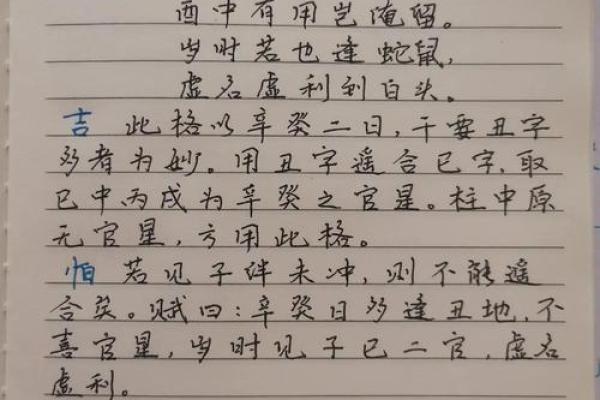 酉中有用岂淹留。
岁时若也逢蛇鼠,
虚名虚利到白头。
吉 此格以辛癸二日,干要丑字
多者为妙。用丑字遥合巳字,取
巳中丙戌为辛癸之官星。柱中原
无官星,方用此格。
怕 若见子绊未冲,则不能遥
合矣。赋曰:辛癸日多逢丑地,不
喜官星,岁时见子巳二官,虚名
虚利。